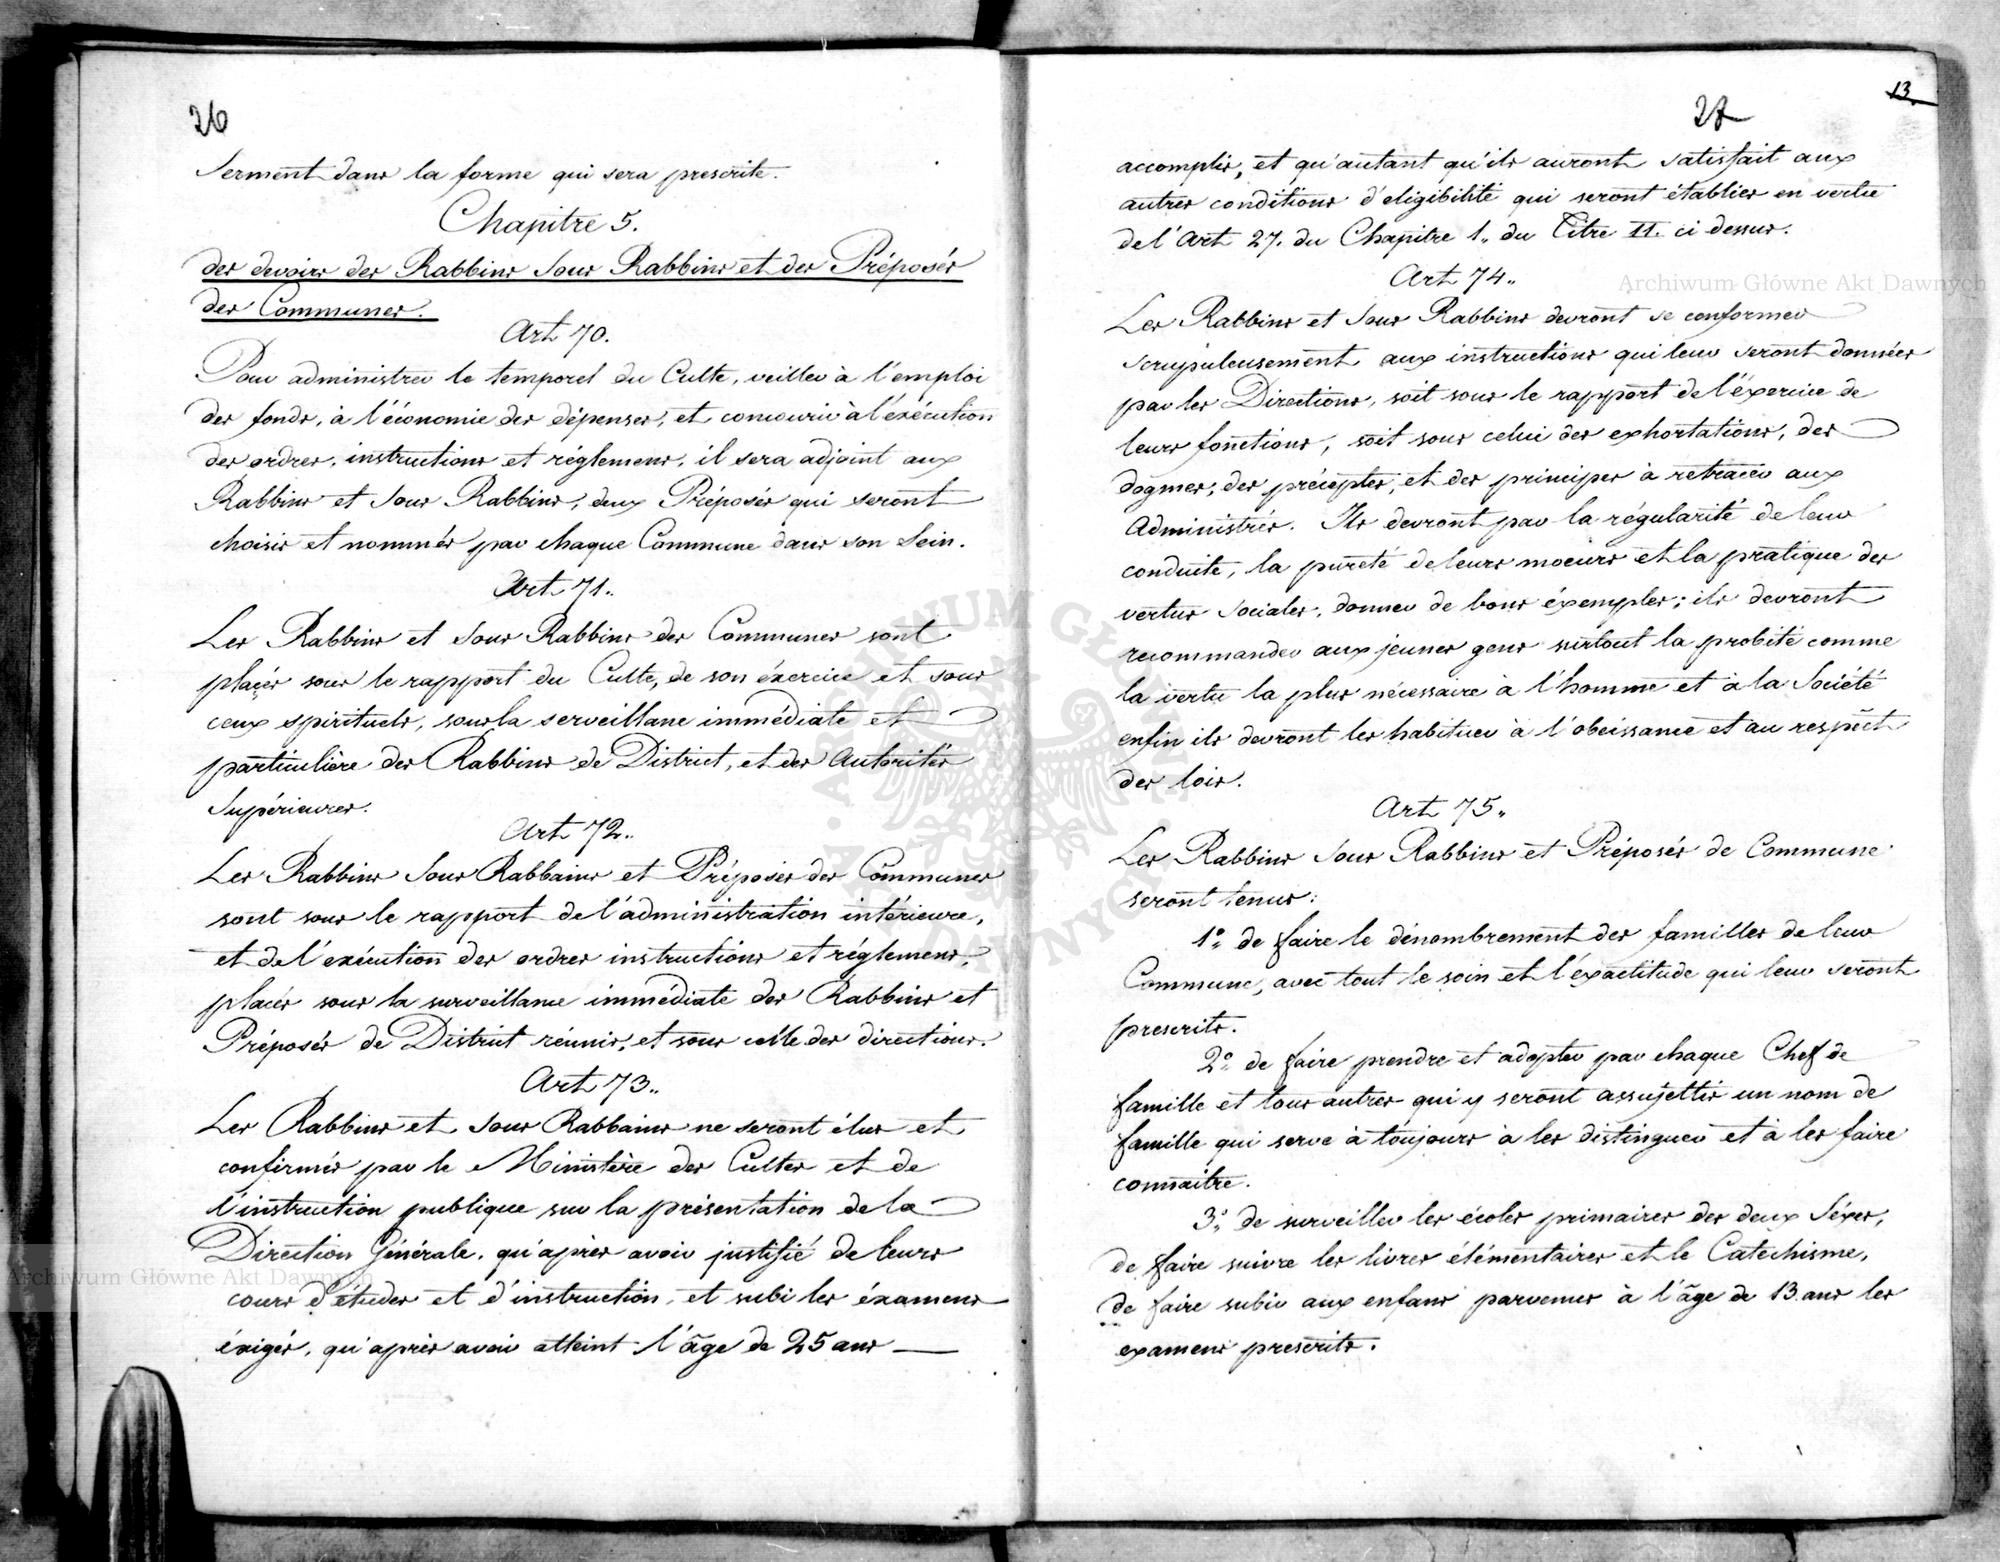 26
Serment dans la forme qui sera prescrite.
Chapitre 5.
des devoirs des Rabbins Sous Rabbins et des Préposés
des Communes.
Art 70.
Pour administrer le temporel du Culte, veiller à l'emploi
des fonds, à l'économie des dépenses, et concourir à l'exécution
des ordres, instructions et réglemens, il sera adjoint aux
Rabbins et Sous Rabbins, deux Préposés qui seront
choisis et nommés par chaque Commune dans son Sein.
Art 71.
Les Rabbins et Sous Rabbins des Communes sont
placés sous le rapport du Culte, de son éxercice et sous
ceux spirituels, sous la serveillance immédiate et
particulière des Rabbins de District, et des Autorités
Supérieures.
Art 72.
Les Rabbins Sous Rabbains et Préposés des Communes
sont sous le rapport de l'administration intérieure,
et de l'exécution des ordres instructions et réglemens,
placés sous la surveillance immédiate des Rabbins et
Préposés de District réunis, et sous celle des directions.
Art 73.
Les Rabbins et Sous Rabbains ne seront élus et
confirmés par le Ministère des Cultes et de
l'instruction publique sur la présentation de la
Direction Générale, qu'après avoir justifié de leurs
cours d'études et d'instruction, et subi les éxamens
éxigés, qu'après avoir atteint l'âge de 25 ans
13.
27
accomplis, et qu'autant qu'ils auront satisfait aux
autres conditions d'eligibilité qui seront établies en vertu
de l'Art 27. du Chapitre 1. du Titre II. ci dessus.
Art 74.
Les Rabbins et Sous Rabbins devront se conformer
scrupuleusement aux instructions qui leur seront données
par les Directions, soit sous le rapport de l'éxercice de
leurs fonctions, soit sous celui des exhortations, des
dogmes, des préceptes, et des principes à retracer aux
Administrés. Ils devront par la régularité de leur
conduite, la pureté de leurs moeurs et la pratique des
vertus Sociales, donner de bons éxemples; ils devront
recommander aux jeunes gens surtout la probité comme
la vertu la plus nécessaire à l'homme et à la Société
enfin ils devront les habituer à l'obeissance et au respect
des lois.
Art 75.
Les Rabbins Sous Rabbins et Préposés de Commune
seront tenus:
1° de faire le dénombrement des familles de leur
Commune, avec tout le soin et l'éxactitude qui leur seront
prescrits.
2° de faire prendre et adopter par chaque Chef de
famille et tous autres qui y seront assujettis un nom de
famille qui serve à toujours à les distinguer et à les faire
connaitre.
3° de surveiller les écoles primaires des deux Séxes,
de faire suivre les livres élémentaires et le Catechisme,
de faire subir aux enfans parvenus à l'âge de 13 ans les
examens prescrits.
Archiwum Główne Akt Dawnych
Archiwum Główne Akt Dawnych
ARCHIWUM GŁÓWNE AKT DAWNYCH